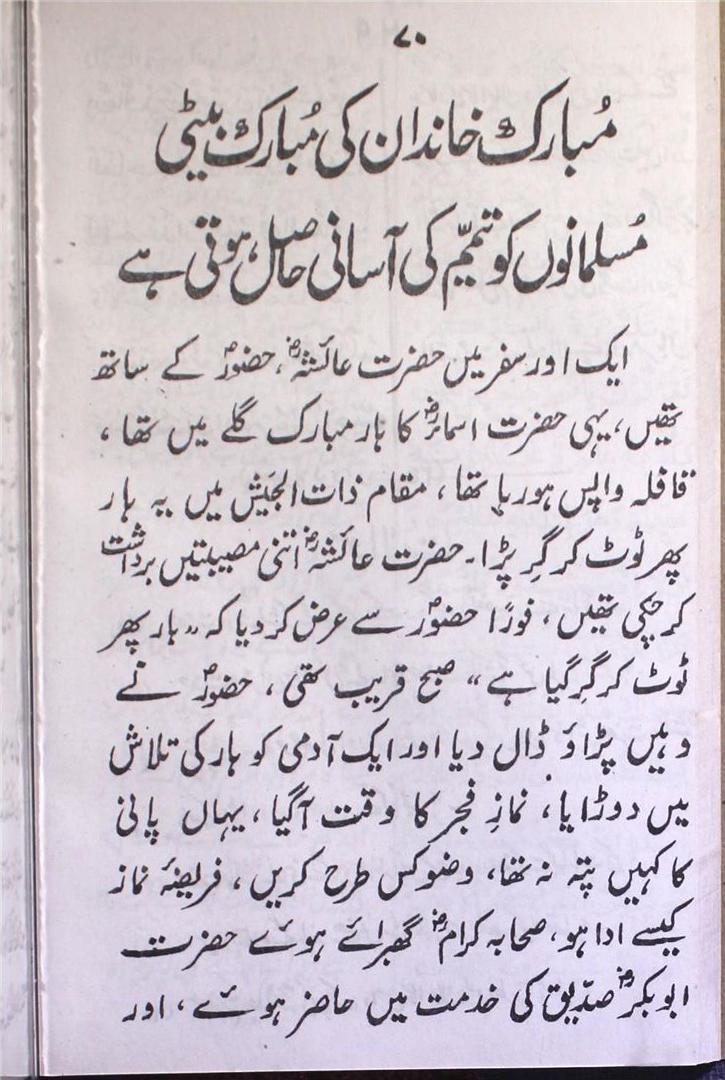 ۷۰
مُبارک خاندان کی مُبارک بیٹی
مُسلمانوں کو تیمّم کی آسانی حاصل ہوتی ہے
ایک اور سفر میں حضرت عائشہؓ، حضورؐ کے ساتھ
تھیں، یہی حضرت اسماءؓ کا ہار مبارک گلے میں تھا،
قافلہ واپس ہو رہا تھا، مقام ذات الجَیش میں یہ ہار
پھر ٹوٹ کر گِر پڑا۔ حضرت عائشہؓ اتنی مصیبتیں برداشت
کر چکی تھیں، فورًا حضورؐ سے عرض کر دیا کہ ”ہار پھر
ٹوٹ کر گِر گیا ہے“ صبح قریب تھی، حضورؐ نے
وہیں پڑاؤ ڈال دیا اور ایک آدمی کو ہار کی تلاش
میں دوڑایا، نمازِ فجر کا وقت آگیا، یہاں پانی
کا کہیں پتہ نہ تھا، وضو کس طرح کریں، فریضۂ نماز
کیسے ادا ہو، صحابہ کرامؓ گھبرائے ہوئے حضرت
ابوبکرؓ صدّیق کی خدمت میں حاضر ہوئے، اور